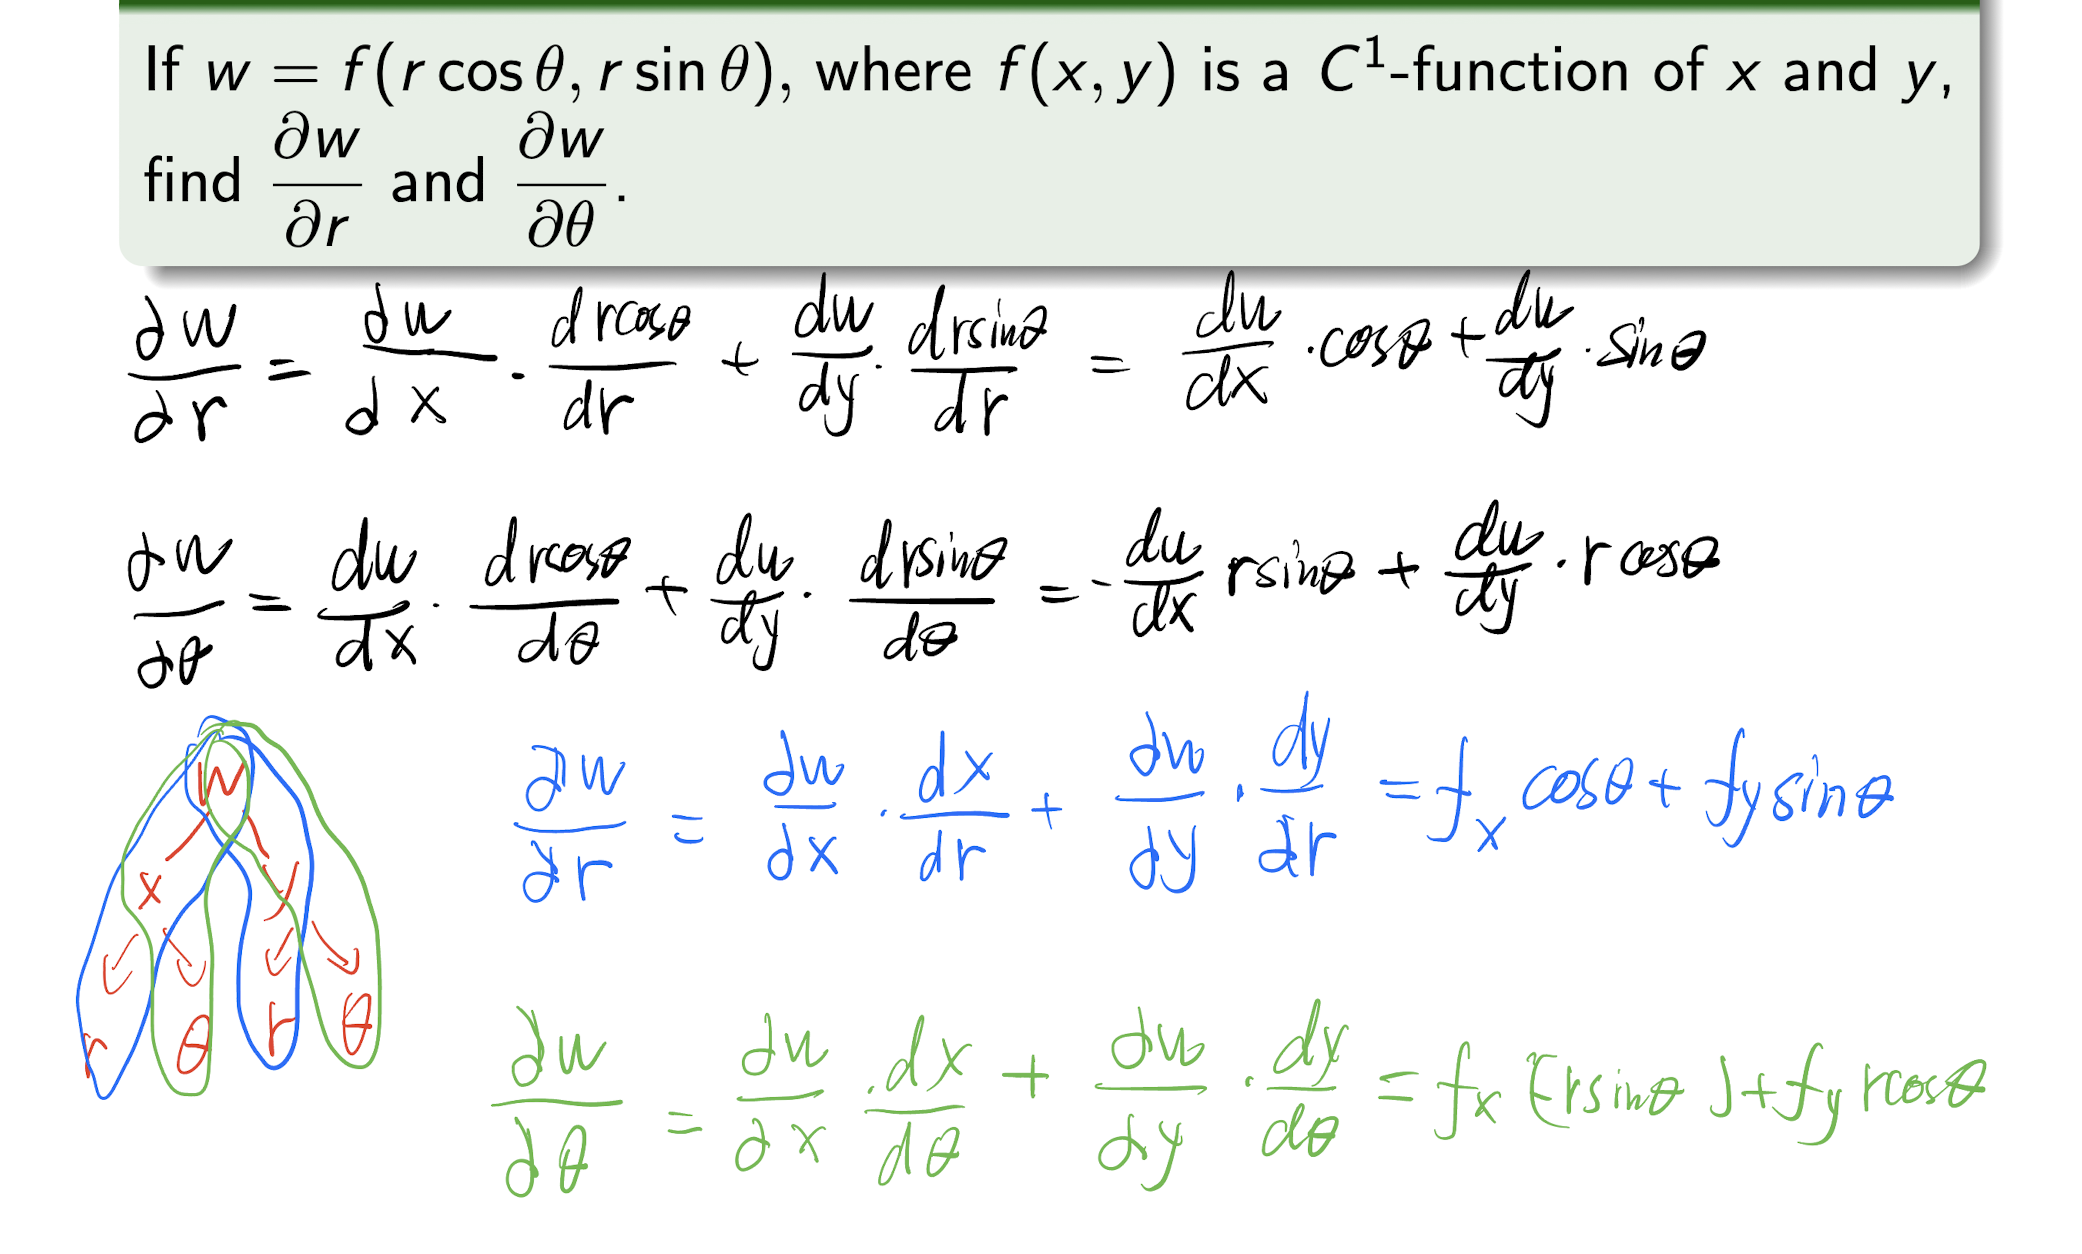 If w = f(r cos θ, r sin θ), where f(x, y) is a C¹-function of x and y,
find ∂w/∂r and ∂w/∂θ.
∂w/∂r = ∂w/∂x · d rcosθ/dr + dw/dy · d rsinθ/dr = dw/dx · cosθ + dw/dy · sinθ
∂w/∂θ = dw/dx · d rcosθ/dθ + dw/dy · d rsinθ/dθ = - dw/dx rsinθ + dw/dy · r cosθ
w
x y
r θ r θ
∂w/∂r = ∂w/∂x · dx/dr + ∂w/∂y · dy/dr = f_x cosθ + f_y sinθ
∂w/∂θ = ∂w/∂x · dx/dθ + ∂w/∂y · dy/dθ = f_x (-rsinθ) + f_y rcosθ